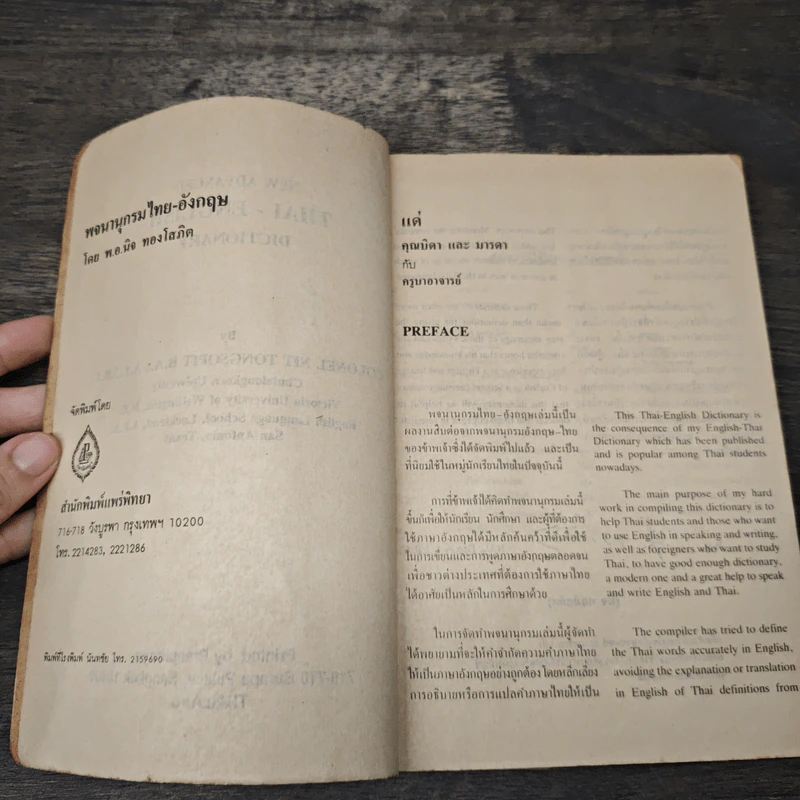 พจนานุกรมไทย-อังกฤษ
โดย พ.อ.นิจ ทองโสภิต
จัดพิมพ์โดย
สำนักพิมพ์แพร่พิทยา
716-718 วังบูรพา กรุงเทพฯ 10200
โทร. 2214283, 2221286
พิมพ์ที่โรงพิมพ์ นันทชัย โทร. 2159690
แด่
คุณบิดา และ มารดา
กับ
ครูบาอาจารย์
PREFACE
พจนานุกรมไทย-อังกฤษเล่มนี้เป็น
ผลงานสืบต่อจากพจนานุกรมอังกฤษ-ไทย
ของข้าพเจ้าซึ่งได้จัดพิมพ์ไปแล้ว และเป็น
ที่นิยมใช้ในหมู่นักเรียนไทยในปัจจุบันนี้
การที่ข้าพเจ้าได้คิดทำพจนานุกรมเล่มนี้
ขึ้นก็เพื่อให้นักเรียน นักศึกษา และผู้ที่ต้องการ
ใช้ภาษาอังกฤษได้มีหลักค้นคว้าที่ดีเพื่อใช้
ในการเขียนและการพูดภาษาอังกฤษตลอดจน
เพื่อชาวต่างประเทศที่ต้องการใช้ภาษาไทย
ได้อาศัยเป็นหลักในการศึกษาด้วย
ในการจัดทำพจนานุกรมเล่มนี้ผู้จัดทำ
ได้พยายามที่จะให้คำจำกัดความคำภาษาไทย
ให้เป็นภาษาอังกฤษอย่างถูกต้อง โดยหลีกเลี่ยง
การอธิบายหรือการแปลคำภาษาไทยให้เป็น
This Thai-English Dictionary is
the consequence of my English-Thai
Dictionary which has been published
and is popular among Thai students
nowadays.
The main purpose of my hard
work in compiling this dictionary is to
help Thai students and those who want
to use English in speaking and writing,
as well as foreigners who want to study
Thai, to have good enough dictionary,
a modern one and a great help to speak
and write English and Thai.
The compiler has tried to define
the Thai words accurately in English,
avoiding the explanation or translation
in English of Thai definitions from